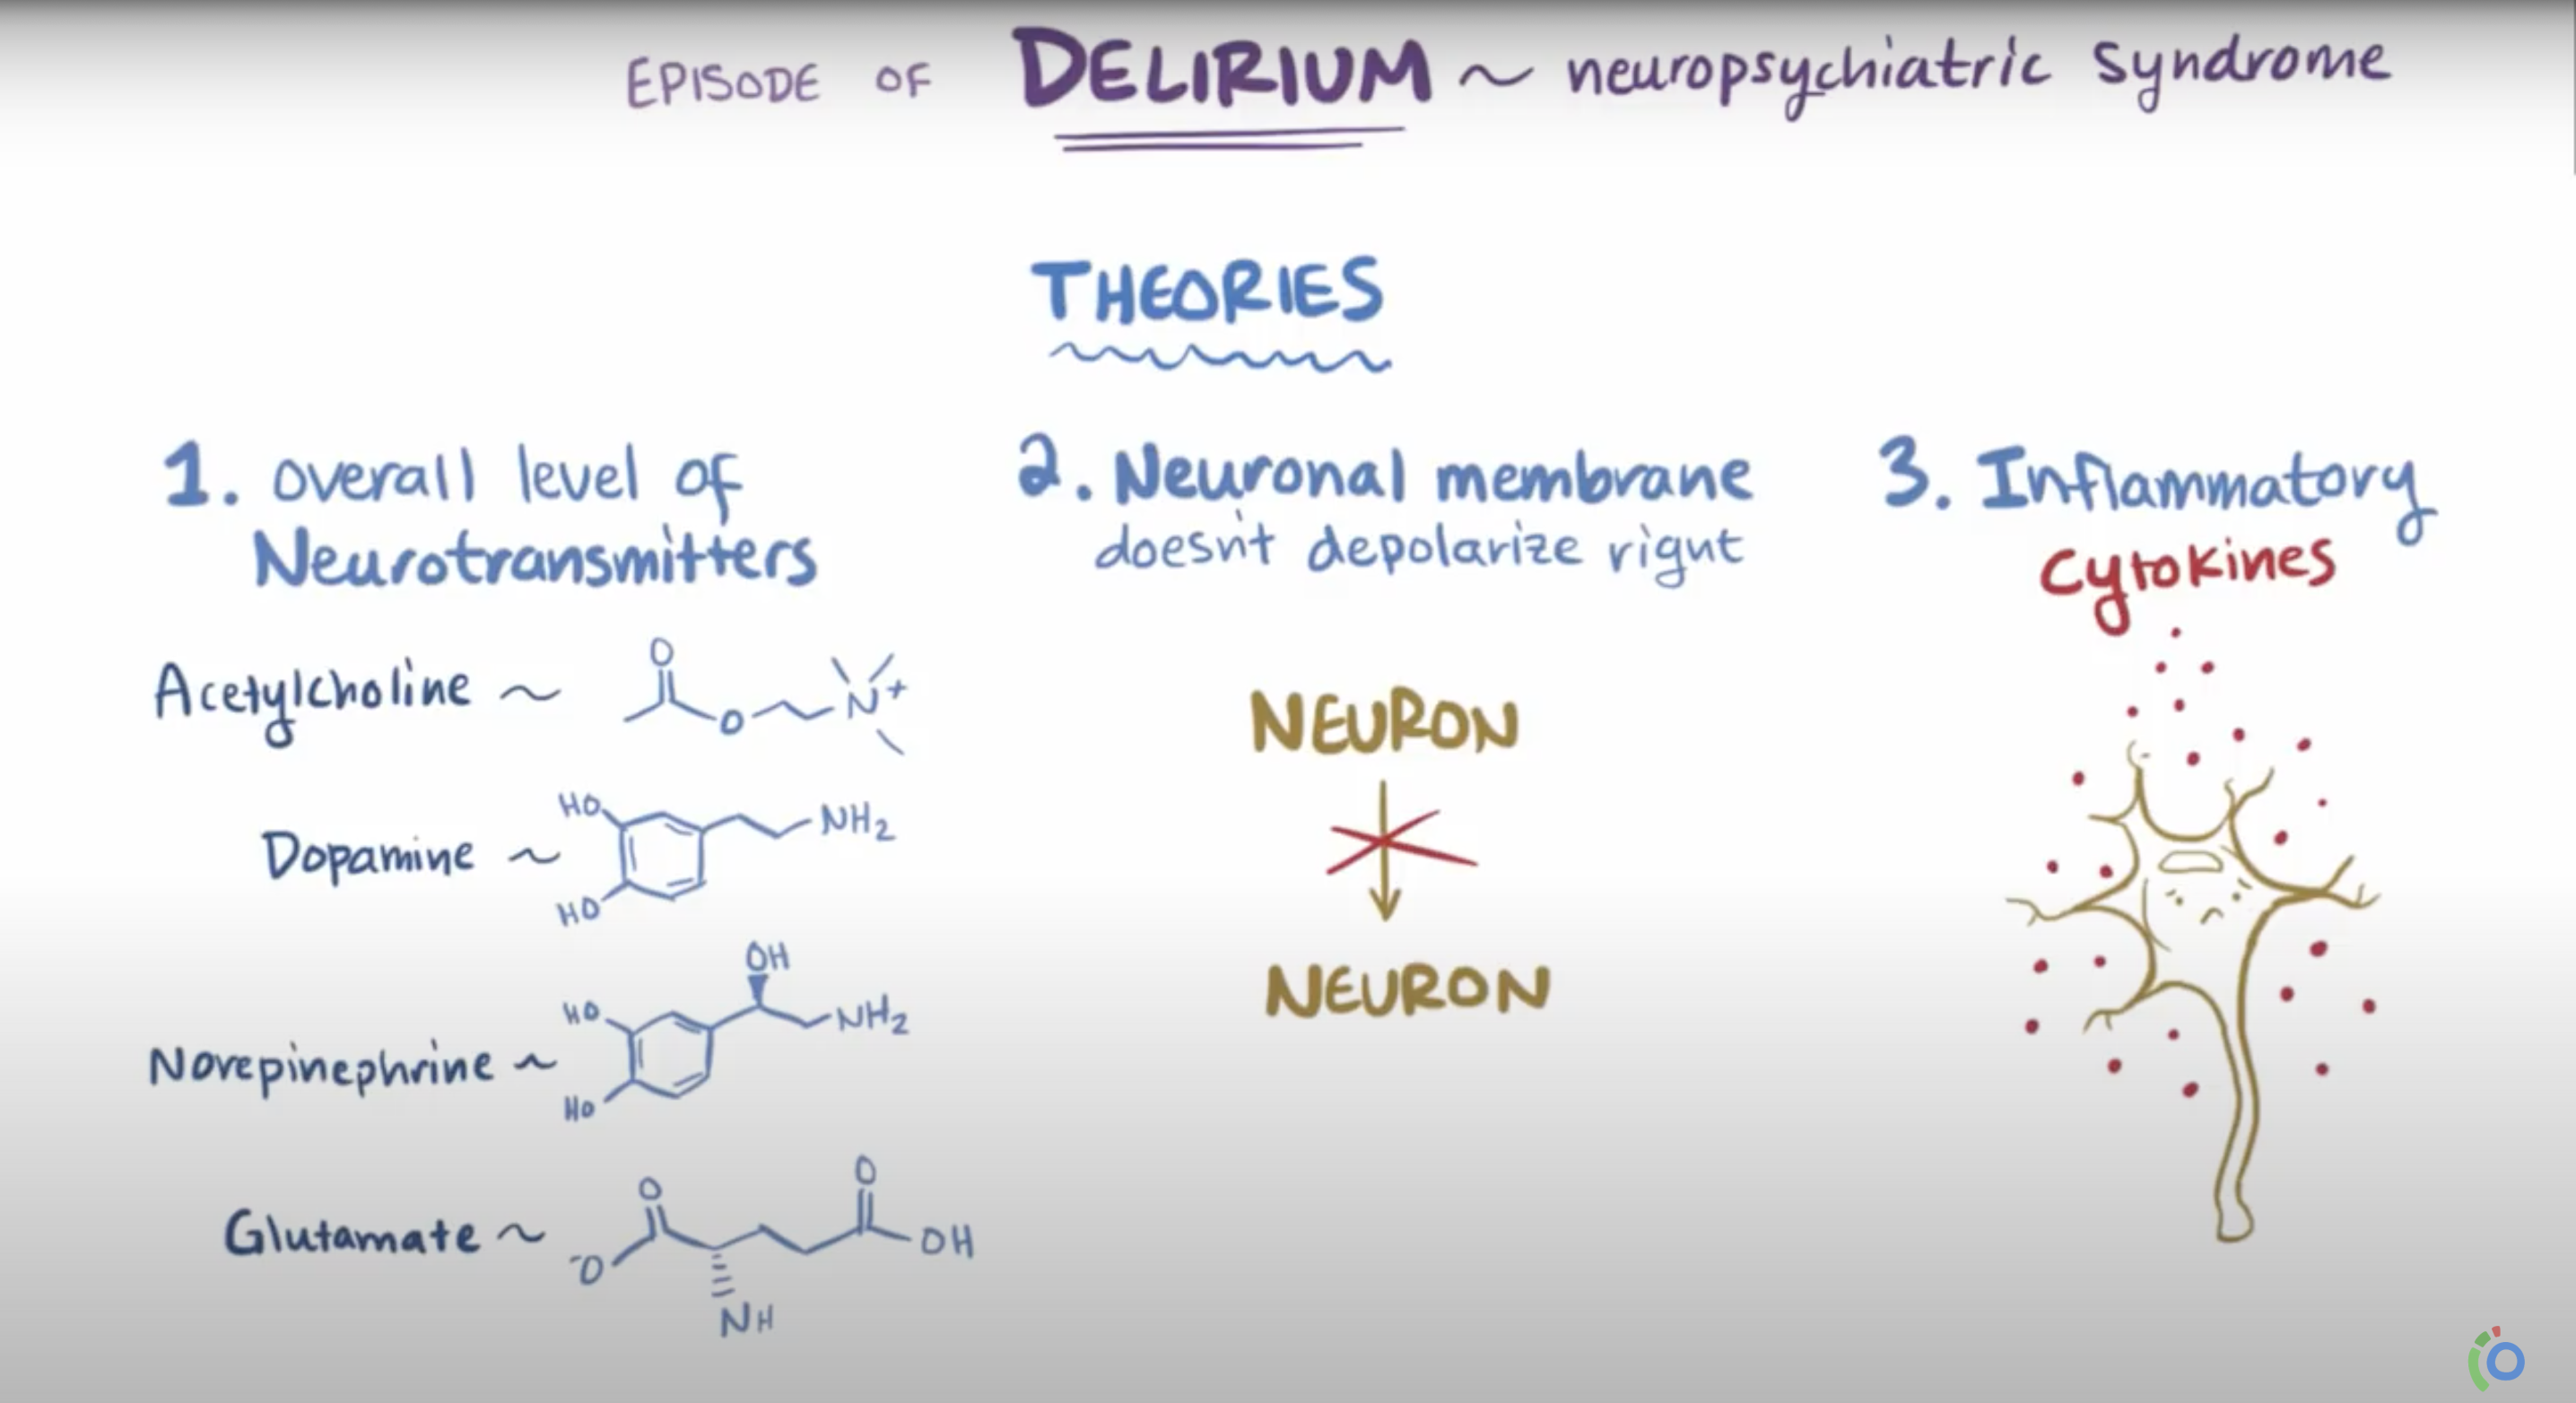 EPISODE OF DELIRIUM ~ neuropsychiatric syndrome
THEORIES
1. overall level of
Neurotransmitters
Acetylcholine ~
O
O
N+
Dopamine ~
HO
NH2
HO
Norepinephrine ~
OH
HO
NH2
HO
Glutamate ~
O
O
-O
OH
NH
2. Neuronal membrane
doesn't depolarize right
NEURON
NEURON
3. Inflammatory
Cytokines